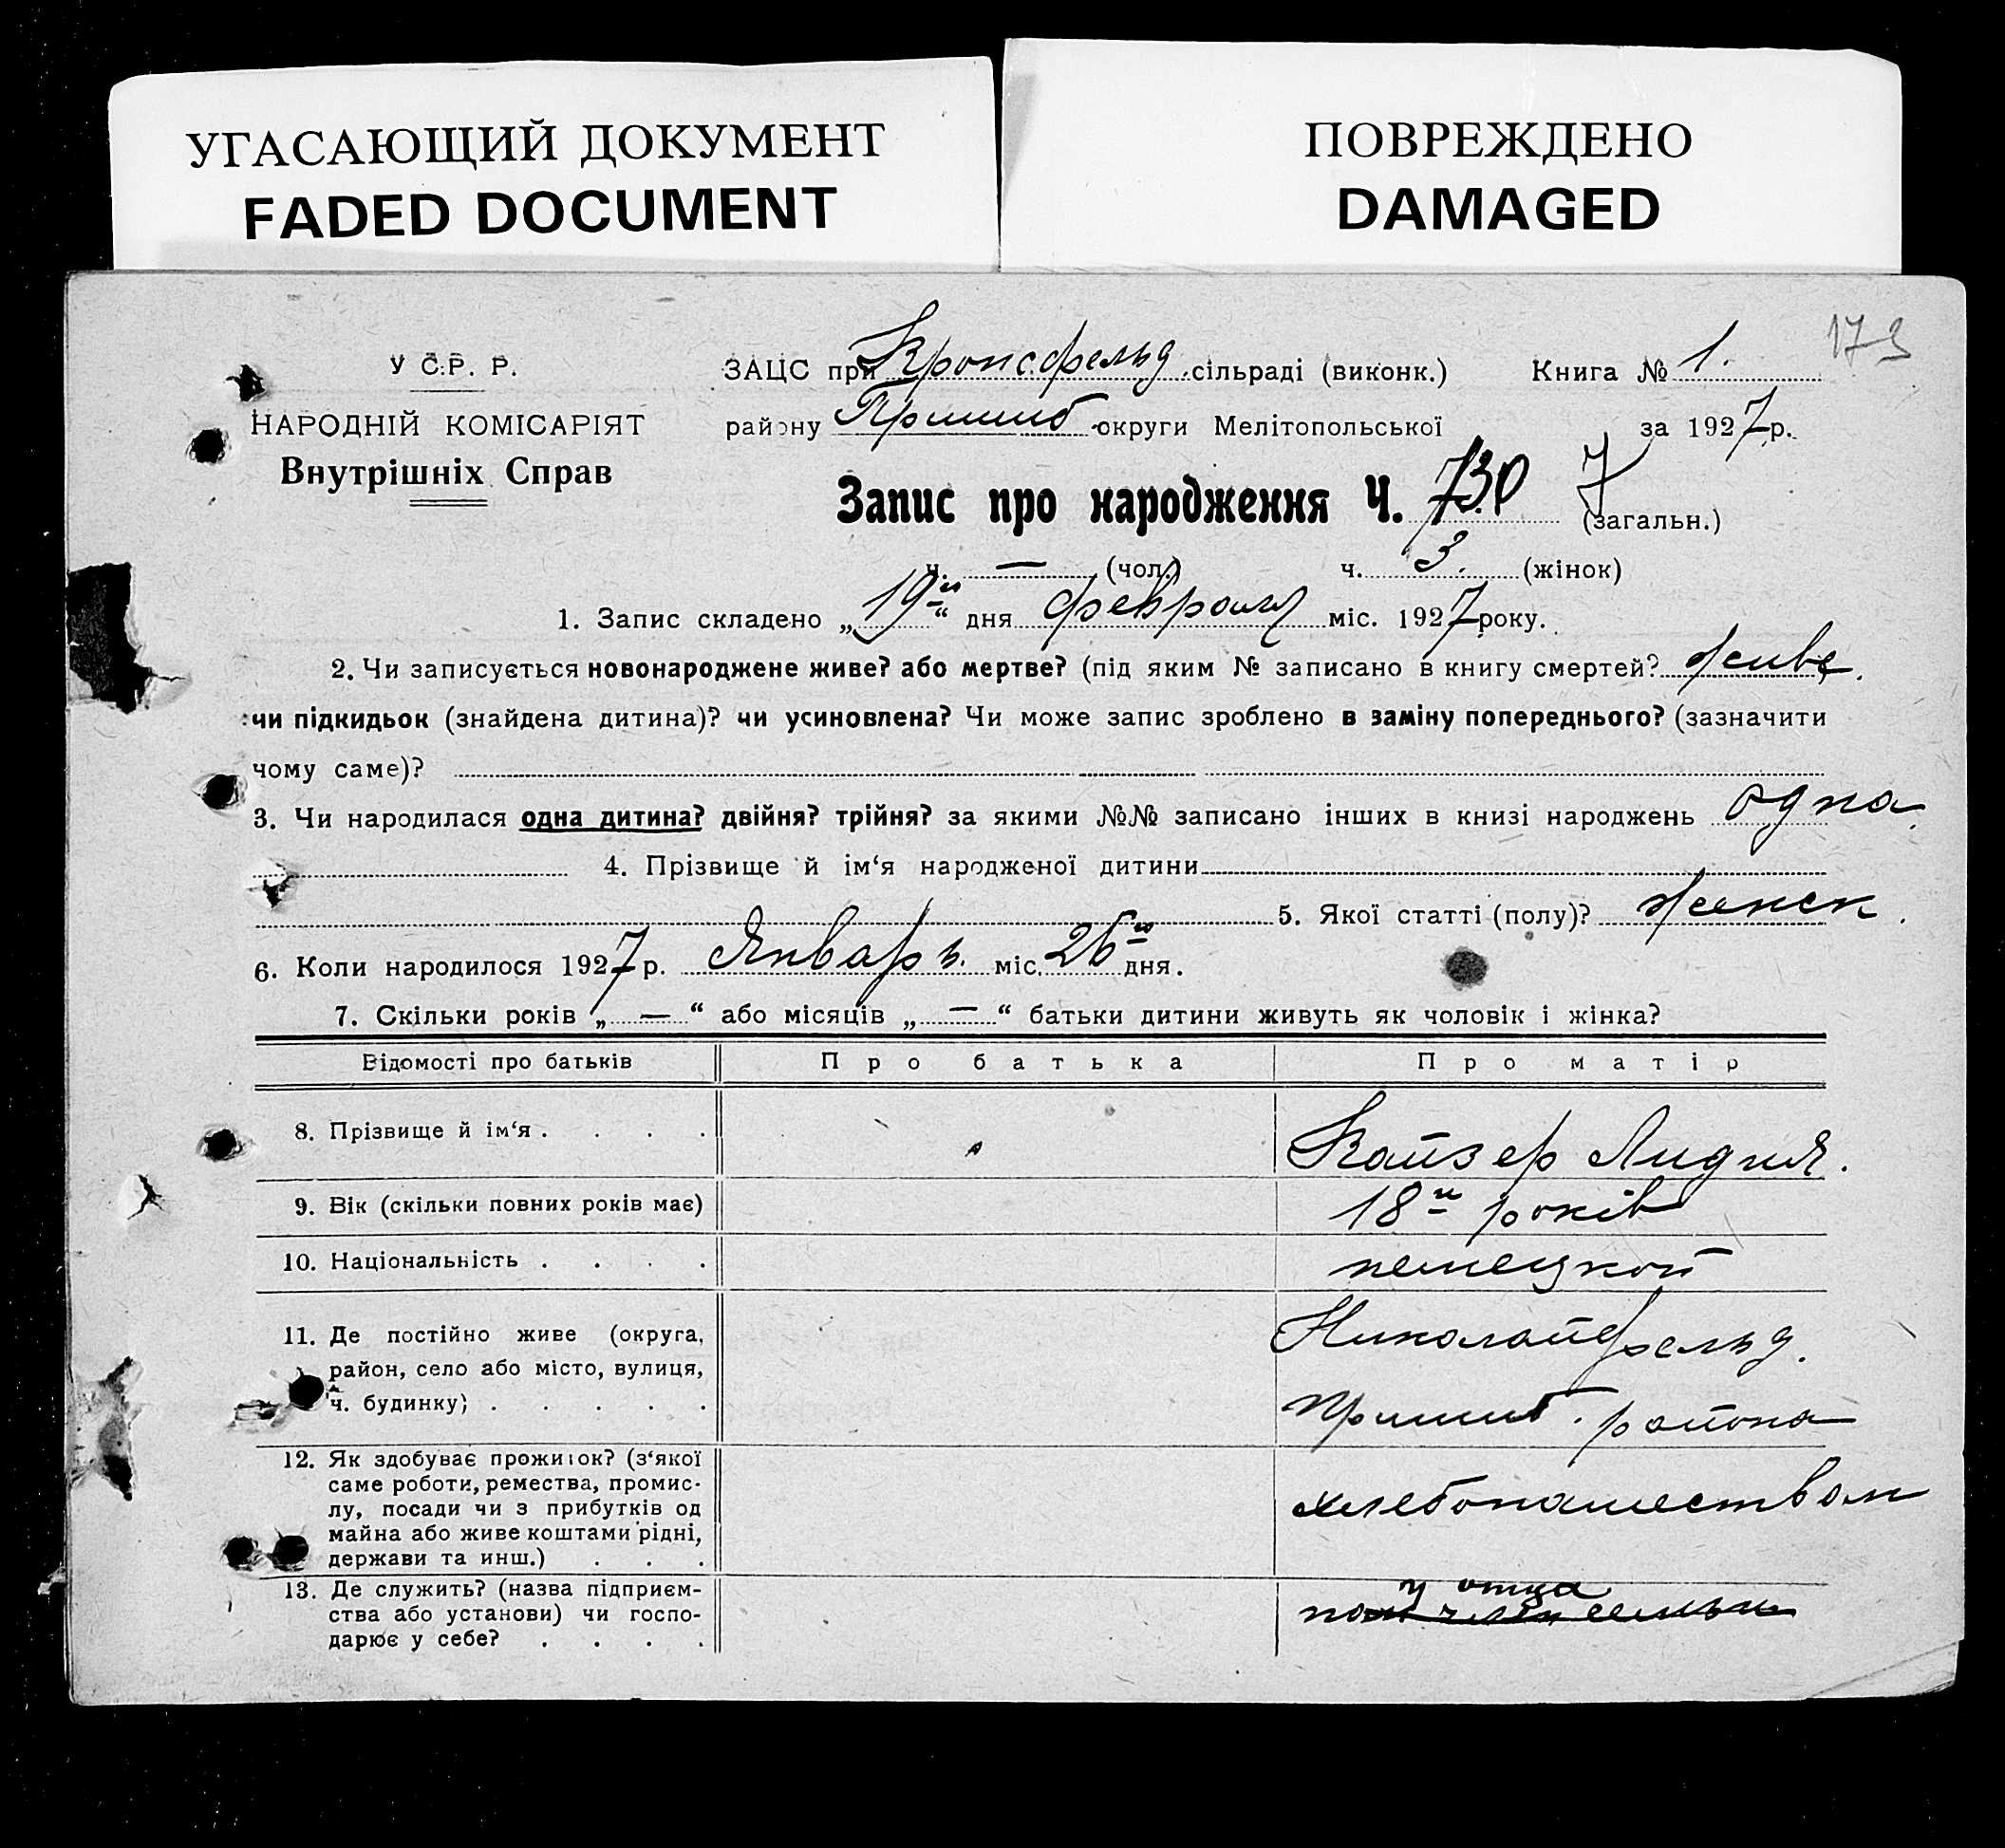 УГАСАЮЩИЙ ДОКУМЕНТ
FADED DOCUMENT
ПОВРЕЖДЕНО
DAMAGED
173
У С.Р. Р.
НАРОДНІЙ КОМІСАРІЯТ
Внутрішніх Справ
ЗАЦС при Кронсфельд сільраді (виконк.) Книга № 1.
району Пришиб округи Мелітопольської за 1927 р.
Запис про народження Ч. 730 7 (загальн.)
ч. — (чол.) ч. 3. (жінок)
1. Запис складено „19го“ дня февраля міс. 1927 року.
2. Чи записується новонароджене живе? або мертве? (під яким № записано в книгу смертей? живе.
чи підкидьок (знайдена дитина)? чи усиновлена? Чи може запис зроблено в заміну попереднього? (зазначити
чому саме)?
3. Чи народилася одна дитина? двійня? трійня? за якими №№ записано інших в книзі народжень одна.
4. Прізвище й ім‘я народженої дитини
5. Якої статті (полу)? женск.
6. Коли народилося 1927 р. Январь. міс. 26го дня.
7. Скільки років „—“ або місяців „—“ батьки дитини живуть як чоловік і жінка?
Відомості про батьків Про батька Про матір
8. Прізвище й ім‘я . . . . Кайзер Лидия.
9. Вік (скільки повних років має) 18и років
10. Національність . . . . немецкой
11. Де постійно живе (округа, Николайфельд.
район, село або місто, вулиця,
ч. будинку) . . . . . Пришиб. района
12. Як здобуває прожиток? (з‘якої
саме роботи, ремества, промис-
лу, посади чи з прибутків од хлебопашеством
майна або живе коштами рідні,
держави та инш.) . . .
13. Де служить? (назва підприєм- у отца
ства або установи) чи госпо-
дарює у себе? . . . .